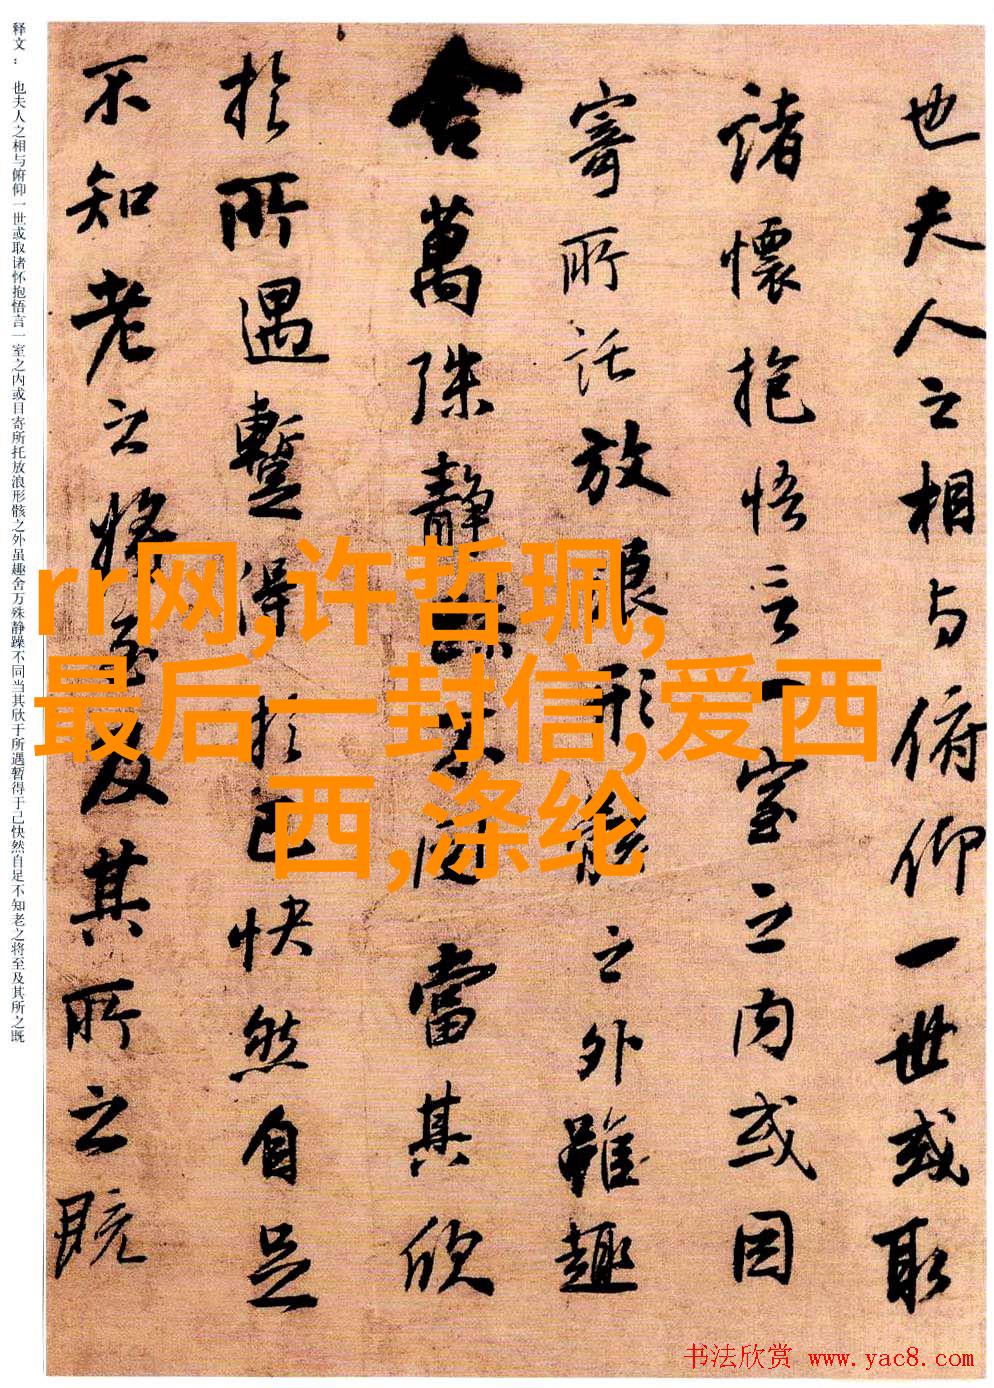 也夫人之相与俯仰一世或取
諸懷抱悟言一室之内或因
寄所託放浪形骸之外雖趣
舍萬殊静躁不同當其欣
於所遇蹔得於己快然自足
不知老之将至及其所之既
释文： 也夫人之相与俯仰一世或取诸怀抱悟言一室之内或目寄所托放浪形骸之外虽趣舍万殊静躁不同当其欣于所遇暂得于己快然自足不知老之将至及其所之既
rr网,许哲珮,
最后一封信,爱西
西,涤纶
书法欣赏 www.yac8.com